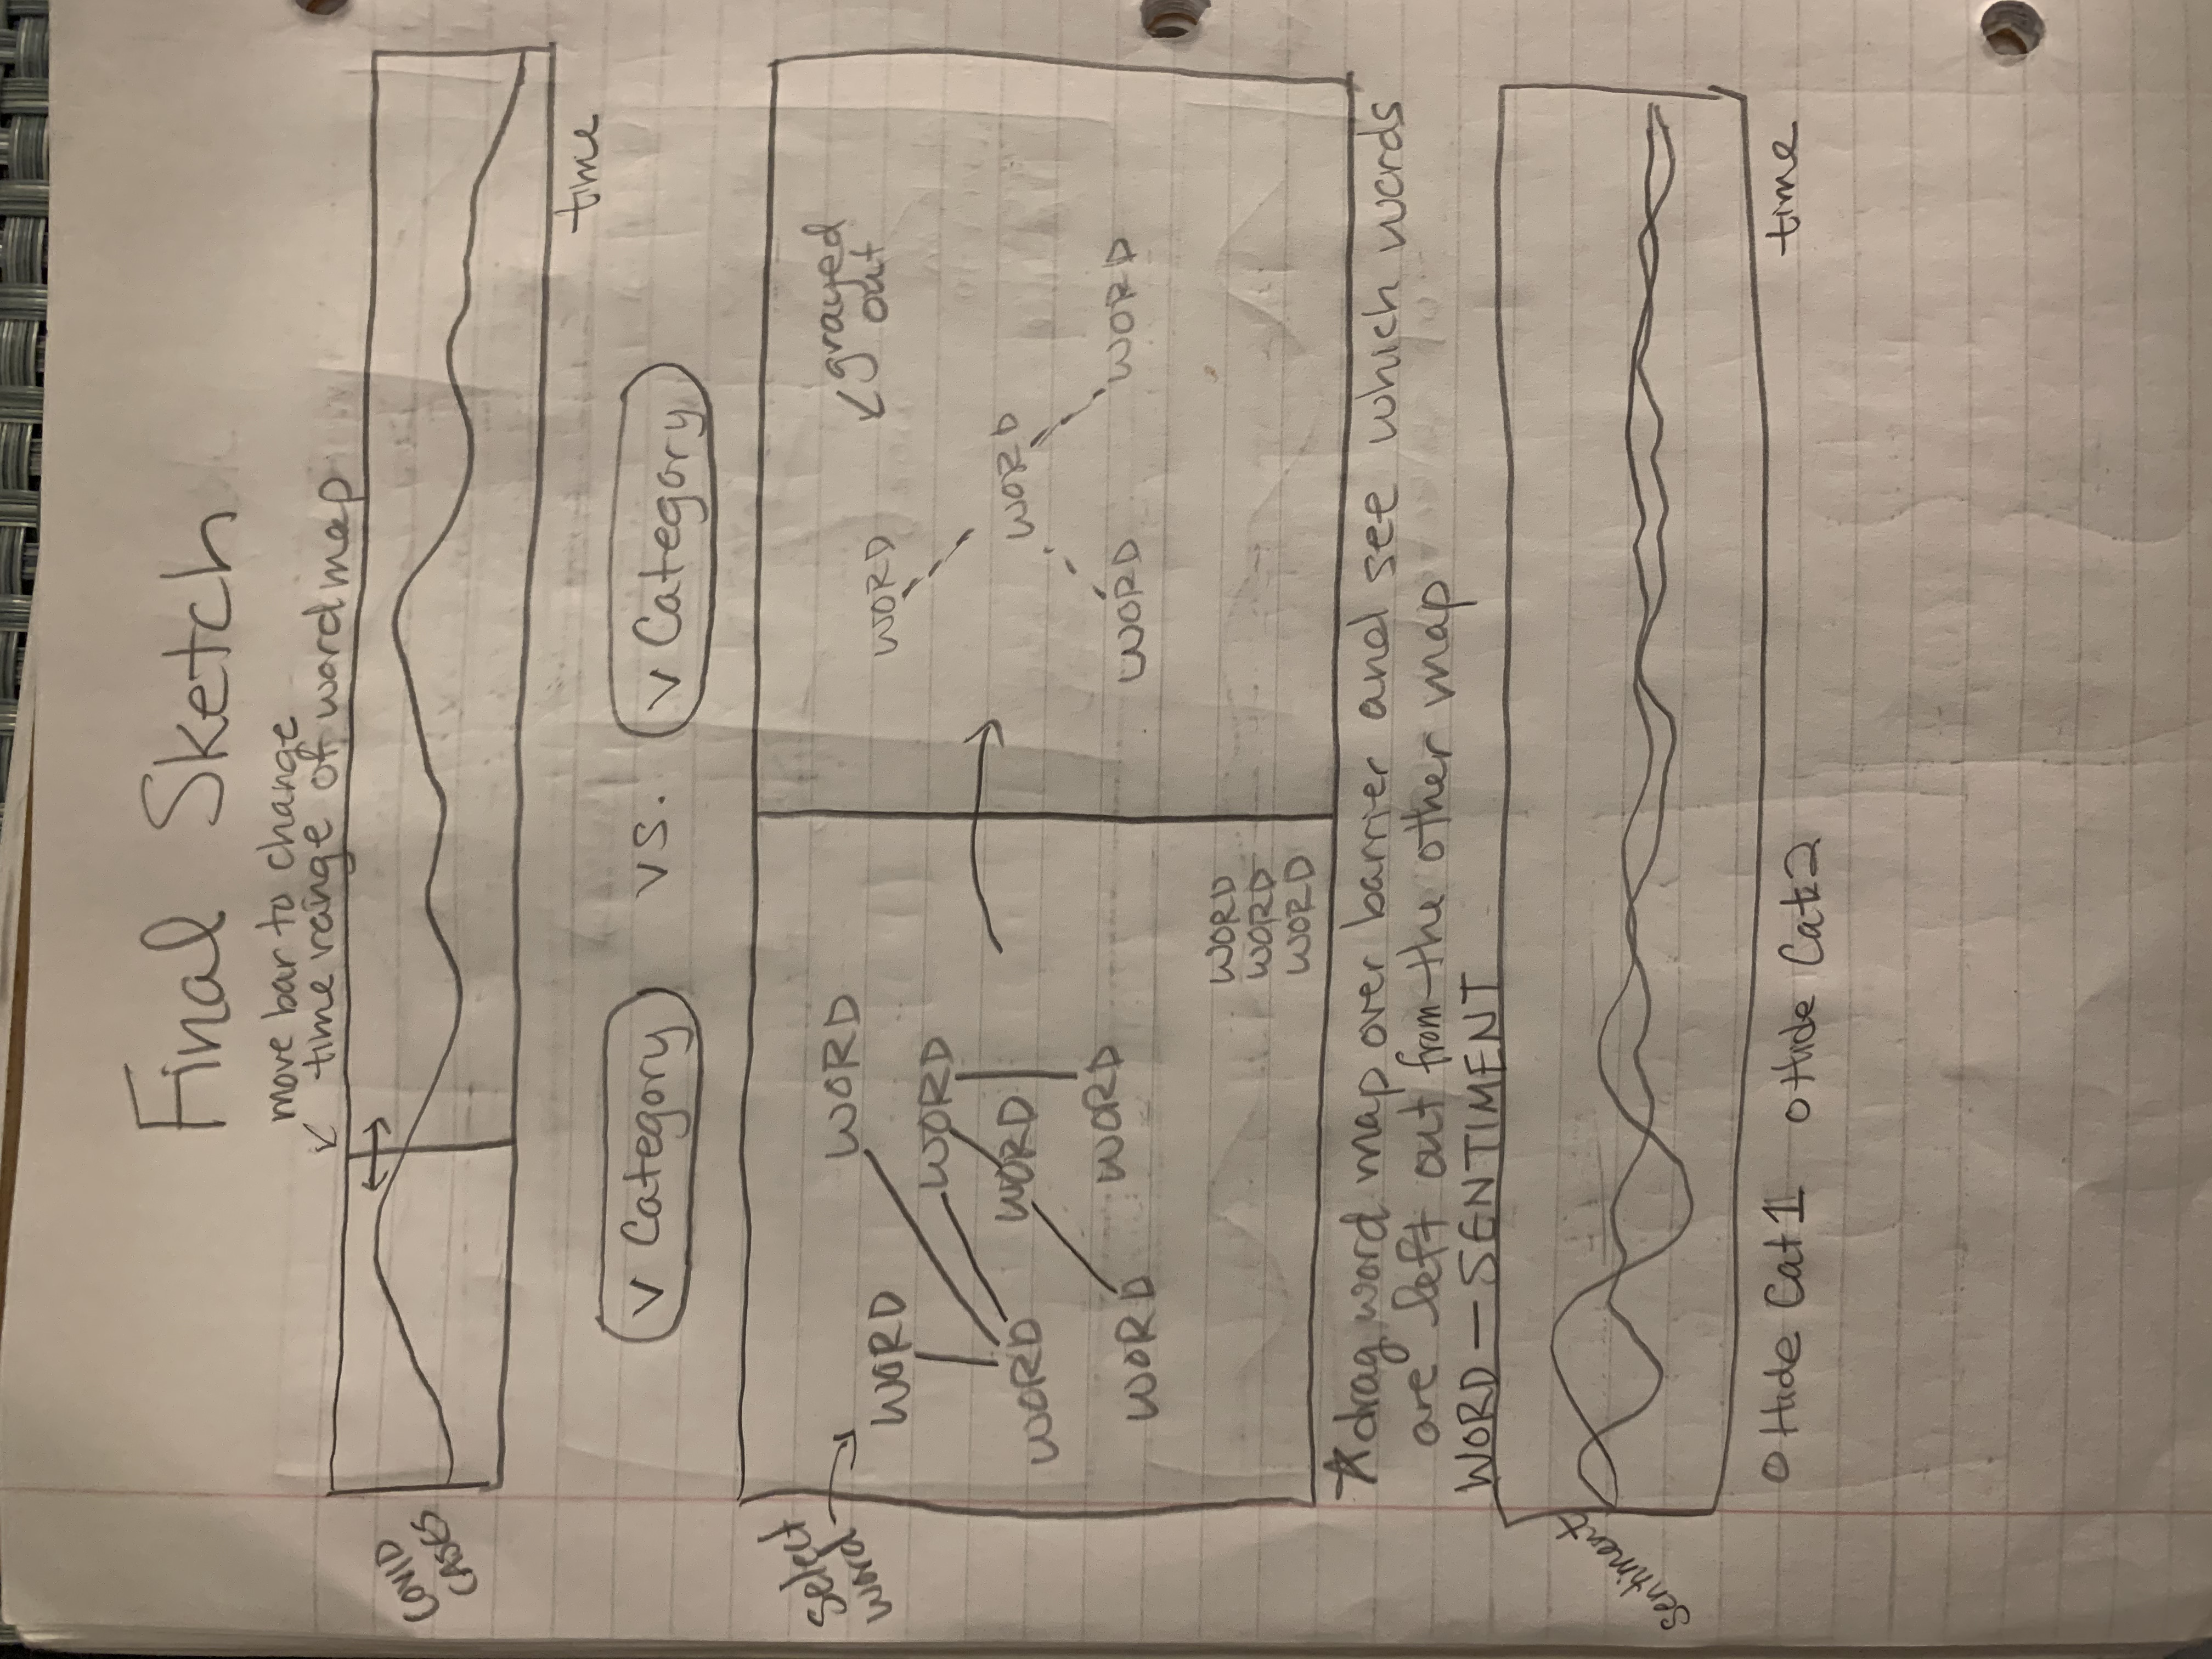 Final Sketch
move bar to change
time range of word map
COVID
CASES
time
v Category vs. v Category
select
word
WORD
WORD
WORD
WORD
WORD
WORD
WORD
WORD
WORD
WORD
grayed
out
WORD
WORD
WORD
WORD
*drag word map over barrier and see which words
are left out from the other map
WORD — SENTIMENT
Sentiment
time
o Hide Cat 1 o Hide Cat 2